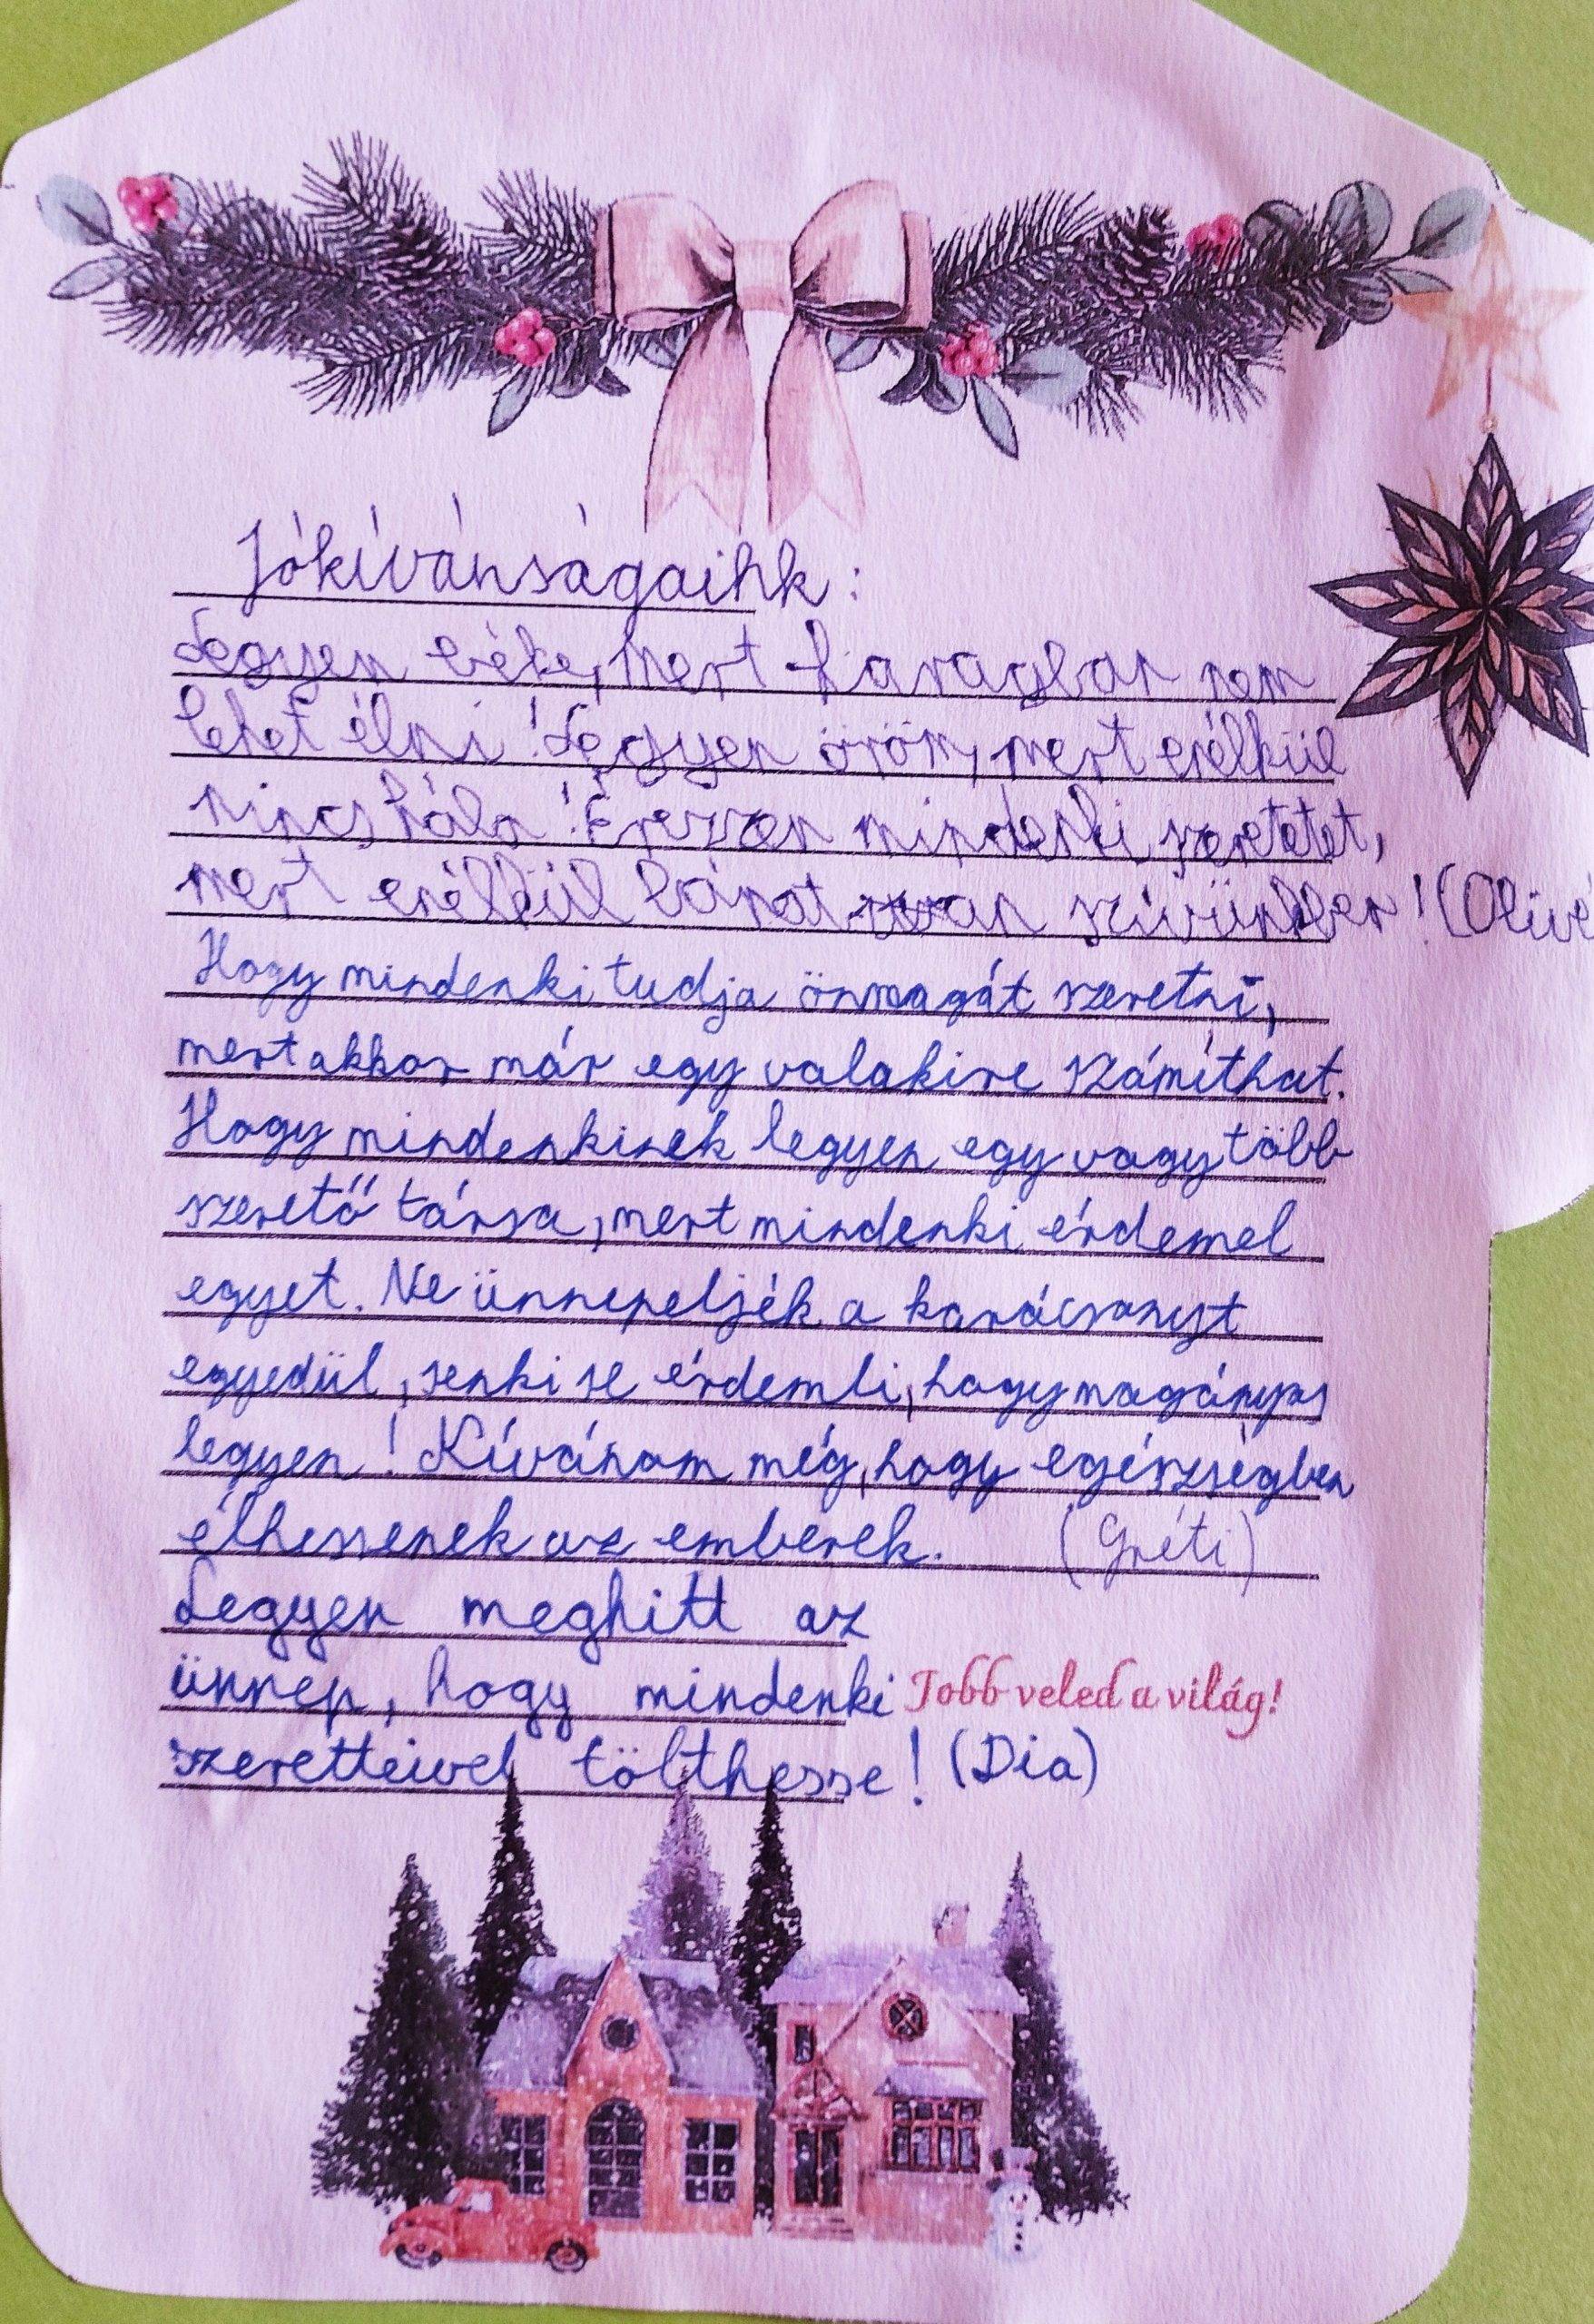 Jókívánságaink:
Legyen béke, mert haragban nem
lehet élni! Legyen öröm, mert enélkül
nincs hála! Érezzen mindenki szeretetet,
mert enélkül bánat van szívünkben! (Olivé
Hogy mindenki tudja önmagát szeretni,
mert akkor már egy valakire számíthat.
Hogy mindenkinek legyen egy vagy több
szerető társa, mert mindenki érdemel
egyet. Ne ünnepeljék a karácsonyt
egyedül, senki se érdemli, hogy magányos
legyen! Kívánom még, hogy egészségben
élhessenek az emberek. (Gréti)
Legyen meghitt az
ünnep, hogy mindenki Jobb veled a világ!
szeretteivel tölthesse! (Dia)